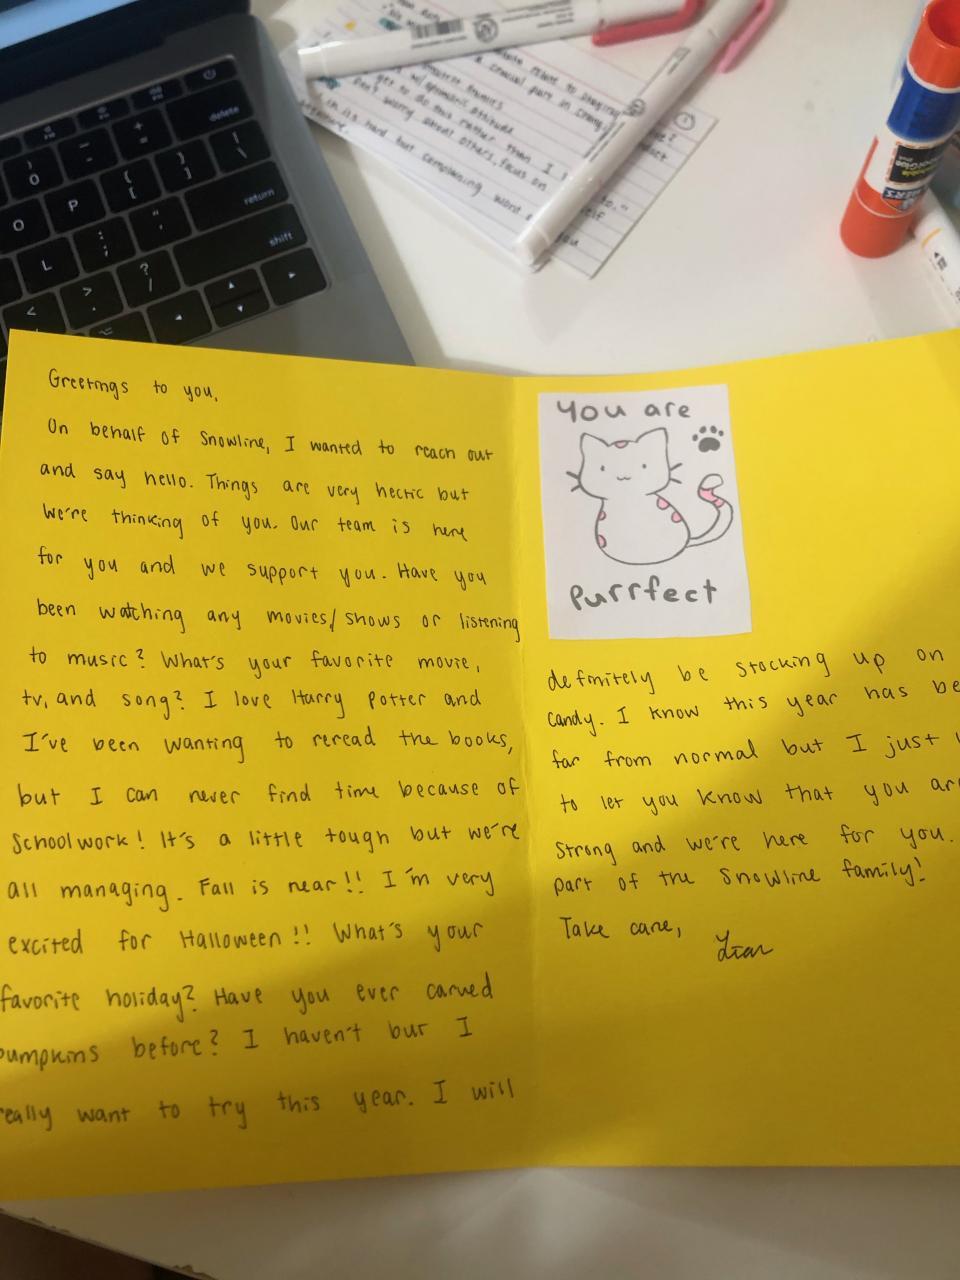 delete
return
shift
O
P
L
crucial part in
rather than I
worry about others, focus on
it's hard but complaining wont
you
Greetings to you,
On behalf of Snowline, I wanted to reach out
and say hello. Things are very hectic but
we're thinking of you. Our team is here
for you and we support you. Have you
been watching any movies/shows or listening
to music? What's your favorite movie,
tv, and song? I love Harry Potter and
I've been wanting to reread the books,
but I can never find time because of
Schoolwork! It's a little tough but we're
all managing. Fall is near!! I'm very
excited for Halloween!! What's your
favorite holiday? Have you ever carved
pumpkins before? I haven't but I
really want to try this year. I will
You are
Purrfect
definitely be stocking up on
candy. I know this year has be
far from normal but I just
to let you know that you ar
Strong and we're here for you.
part of the Snowline family!
Take care,